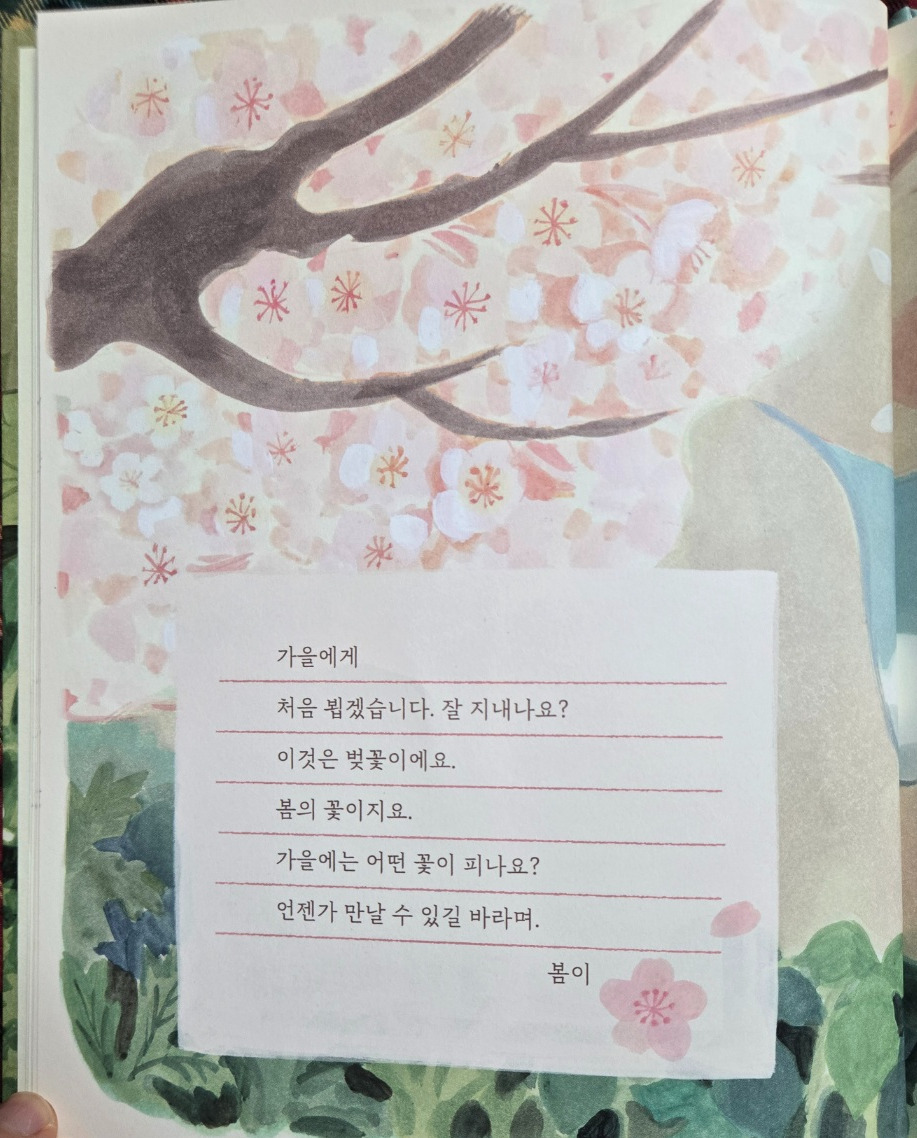 가을에게
처음 뵙겠습니다. 잘 지내나요?
이것은 벚꽃이에요.
봄의 꽃이지요.
가을에는 어떤 꽃이 피나요?
언젠가 만날 수 있길 바라며.
봄이